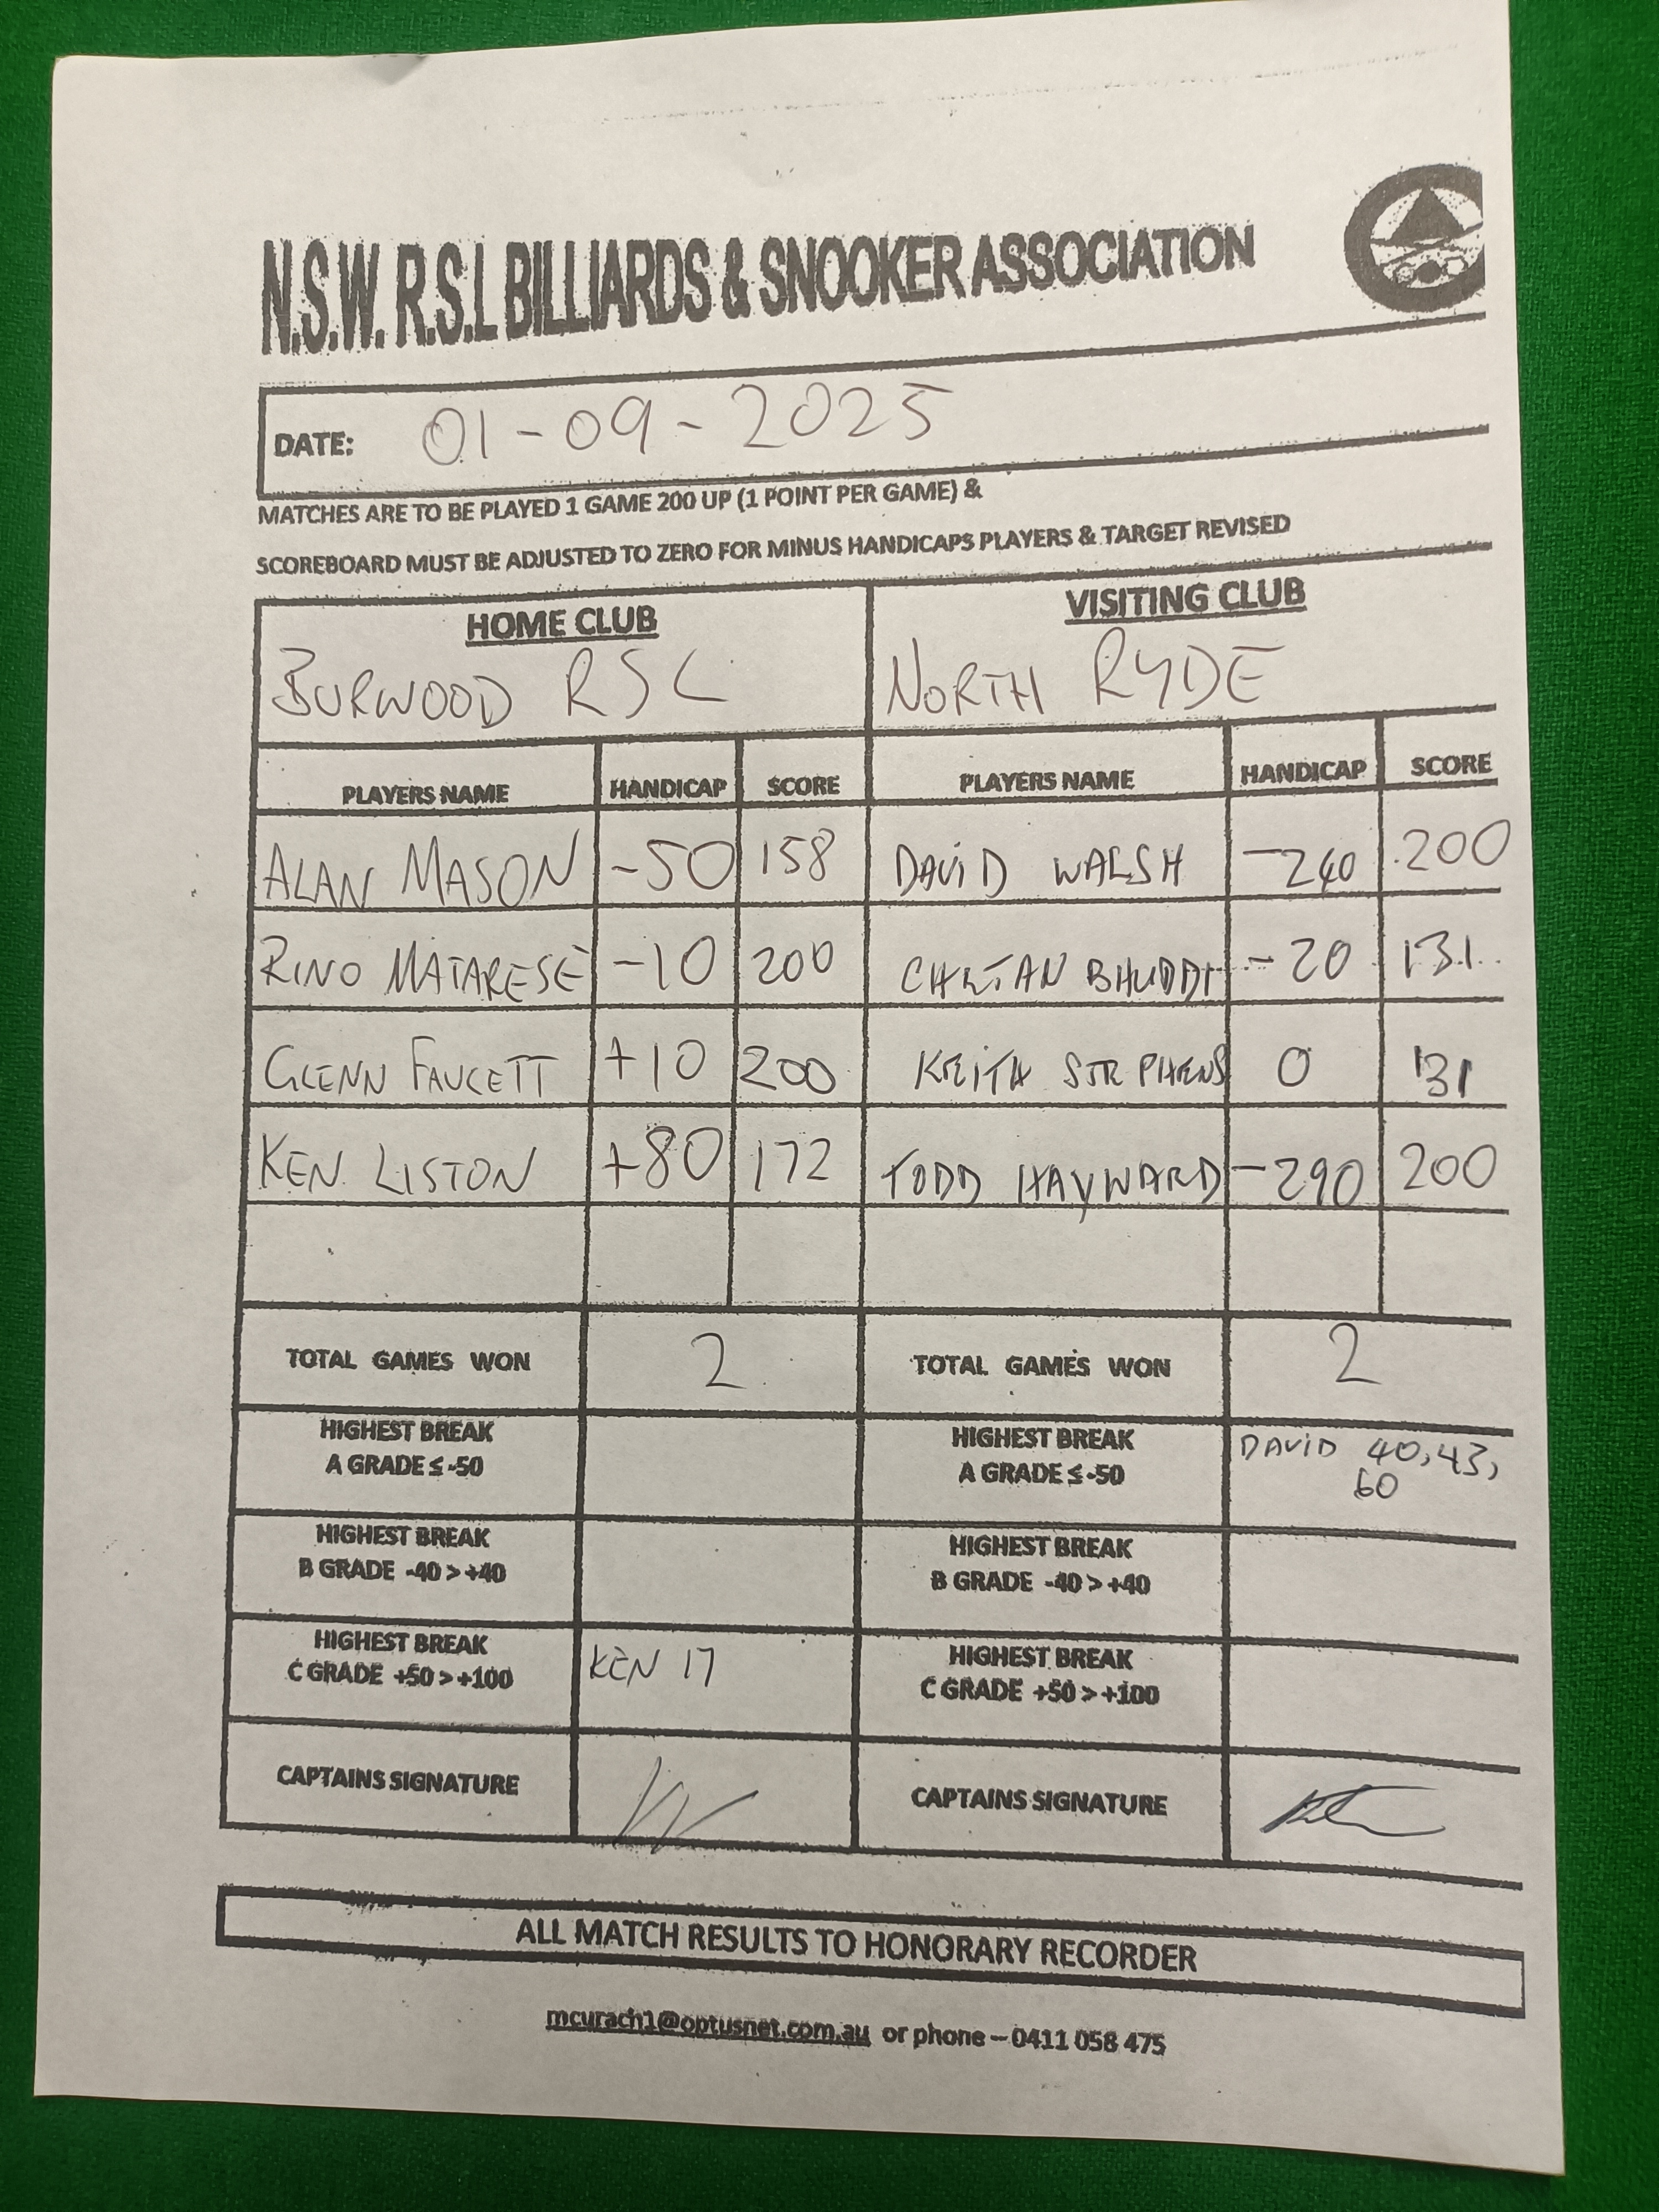 N.S.W. R.S.L BILLIARDS & SNOOKER ASSOCIATION
DATE: 01-09-2025
MATCHES ARE TO BE PLAYED 1 GAME 200 UP (1 POINT PER GAME) &
SCOREBOARD MUST BE ADJUSTED TO ZERO FOR MINUS HANDICAPS PLAYERS & TARGET REVISED
HOME CLUB VISITING CLUB
BURWOOD RSL NORTH RYDE
PLAYERS NAME HANDICAP SCORE PLAYERS NAME HANDICAP SCORE
ALAN MASON -50 158 DAVID WALSH -240 200
RINO MATARESE -10 200 CHETAN BHUDDI -20 131
GLENN FAUCETT +10 200 KEITH STEPHENS 0 131
KEN LISTON +80 172 TODD HAYWARD -290 200
TOTAL GAMES WON 2 TOTAL GAMES WON 2
HIGHEST BREAK HIGHEST BREAK DAVID 40, 43,
A GRADE ≤ -50 A GRADE ≤ -50 60
HIGHEST BREAK HIGHEST BREAK
B GRADE -40 > +40 B GRADE -40 > +40
HIGHEST BREAK KEN 17 HIGHEST BREAK
C GRADE +50 > +100 C GRADE +50 > +100
CAPTAINS SIGNATURE CAPTAINS SIGNATURE
ALL MATCH RESULTS TO HONORARY RECORDER
mcurach1@optusnet.com.au or phone – 0411 058 475